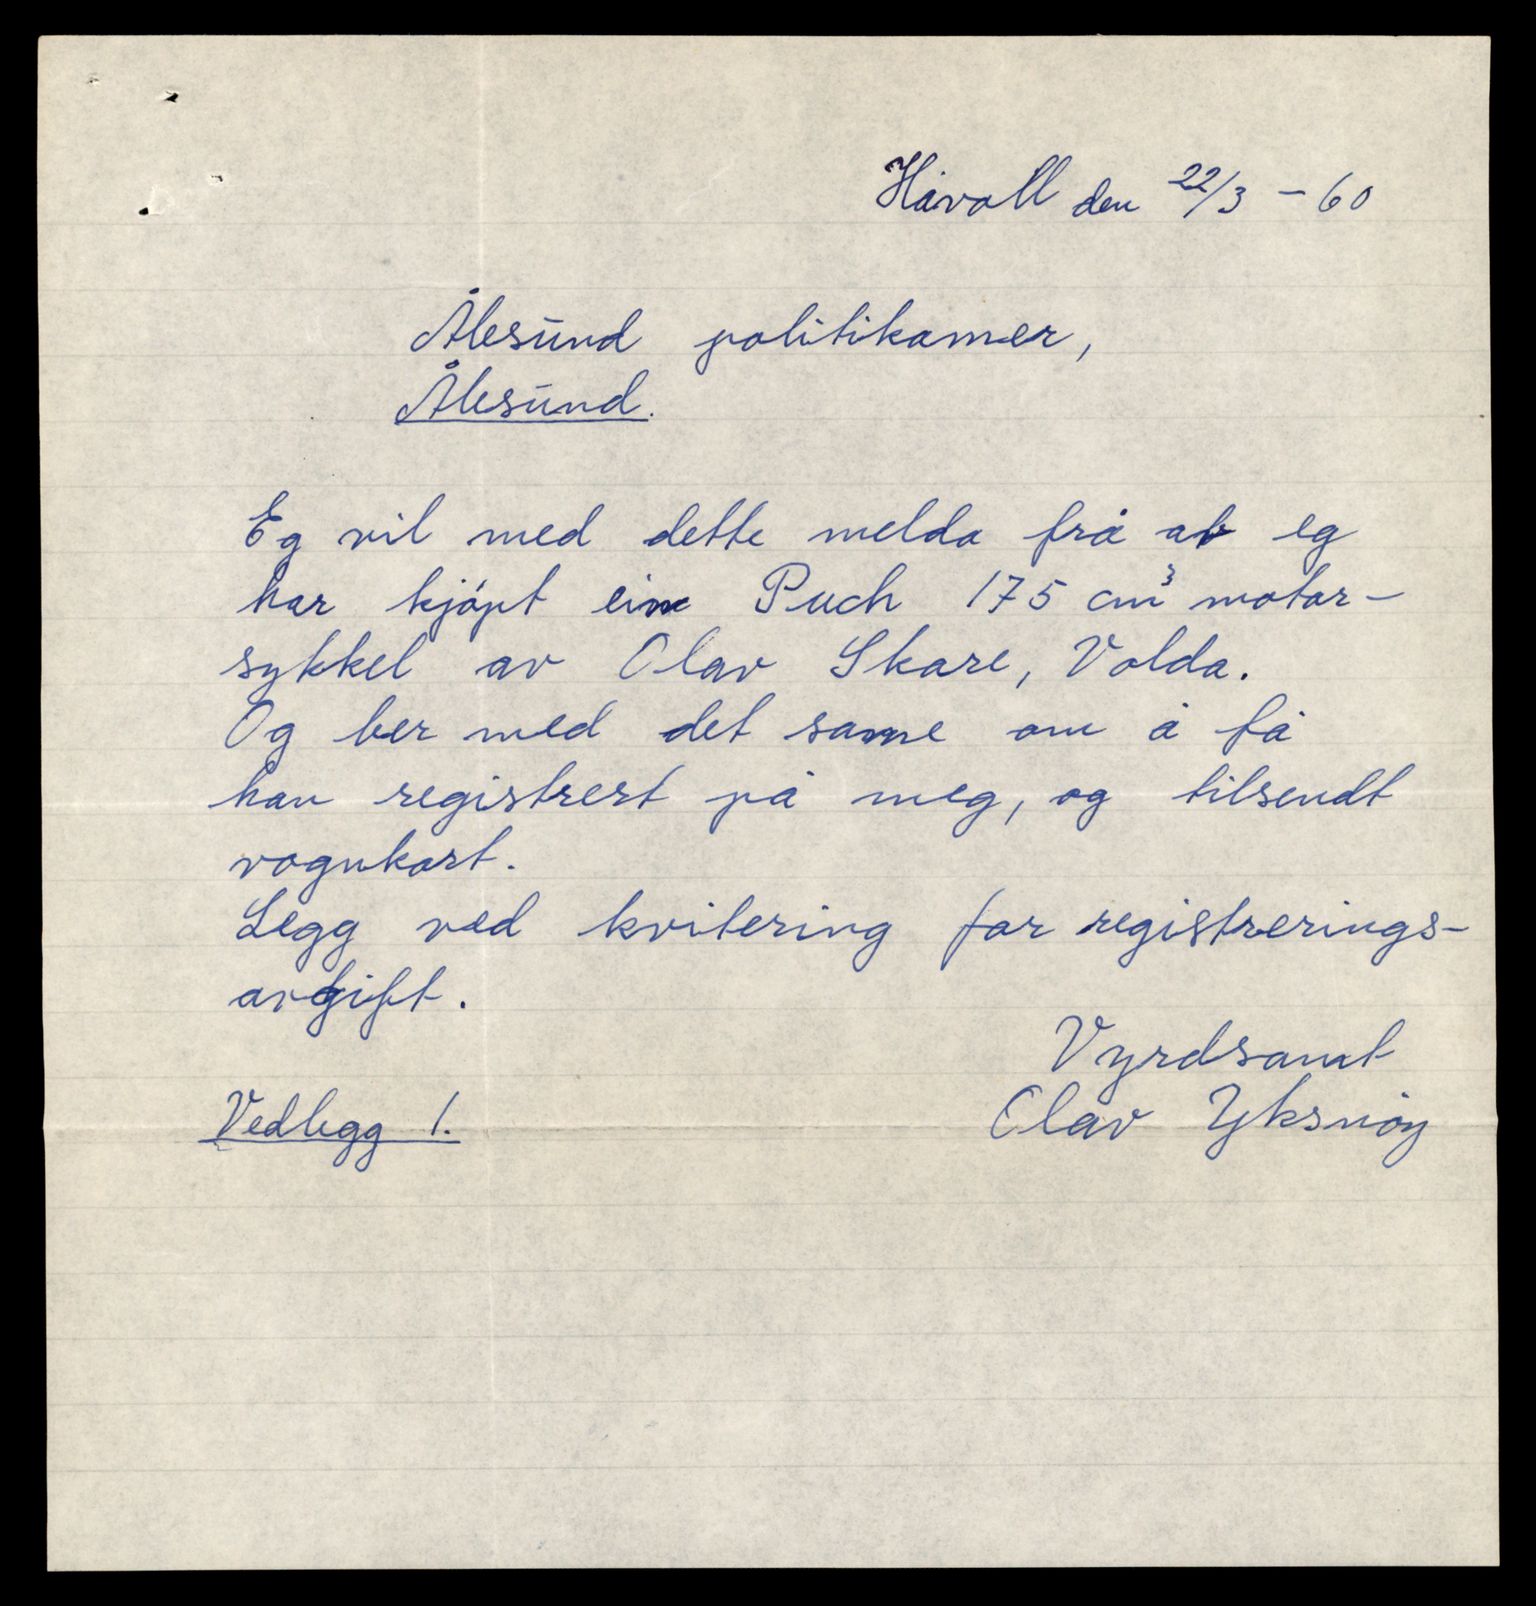 Håvoll den 22/3 - 60
Ålesund politikamer,
Ålesund.
Eg vil med dette melda frå at eg
har kjøpt ein Puch 175 cm³ motor-
sykkel av Olav Skare, Volda.
Og ber med det same om å få
han registrert på meg, og tilsendt
vognkort.
Legg ved kvitering for registrerings-
avgift.
Vyrdsamt
Olav Yksnøy
Vedlegg 1.